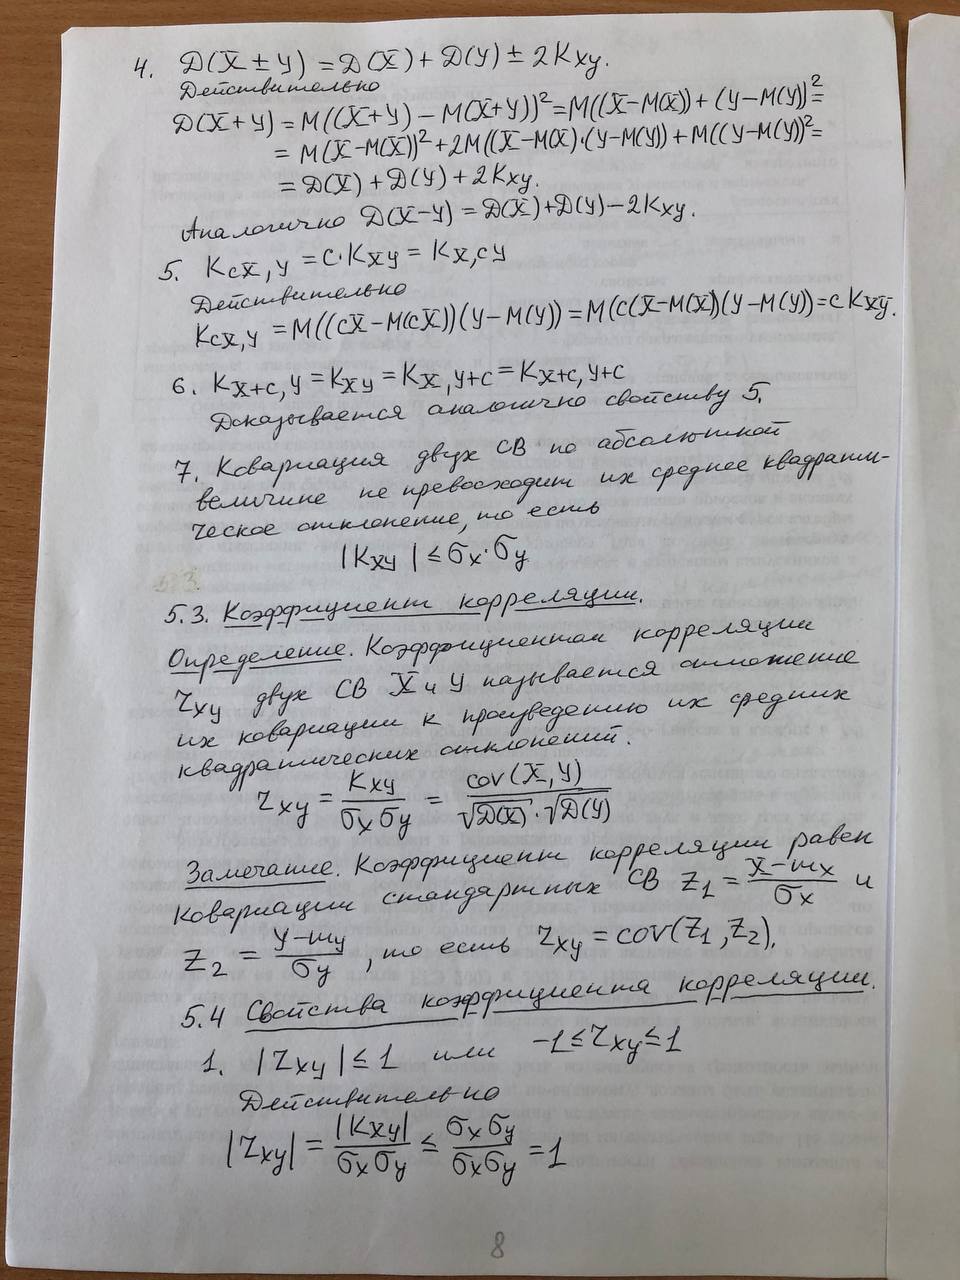 4. D(X ± Y) = D(X) + D(Y) ± 2Kxy.
Действительно
D(X+Y) = M((X+Y) − M(X+Y))² = M((X−M(X)) + (Y−M(Y))² =
= M(X−M(X))² + 2M((X−M(X)·(Y−M(Y)) + M((Y−M(Y))² =
= D(X) + D(Y) + 2Kxy.
Аналогично D(X−Y) = D(X)+D(Y)−2Kxy.
5. Kcx,y = c·Kxy = Kx,cy
Действительно
Kcx,y = M((cX−M(cX))(Y−M(Y)) = M(c(X−M(X))(Y−M(Y)) = cKxy.
6. Kx+c,y = Kxy = Kx,y+c = Kx+c,y+c
Доказывается аналогично свойству 5.
7. Ковариация двух СВ по абсолютной
величине не превосходит их среднее квадрати-
ческое отклонение, то есть
|Kxy| ≤ σx·σy
5.3. Коэффициент корреляции.
Определение. Коэффициентом корреляции
rxy двух СВ X и Y называется отношение
их ковариации к произведению их средних
квадратических отклонений.
rxy = Kxy/σxσy = cov(X,Y)/√D(X)·√D(Y)
Замечание. Коэффициент корреляции равен
ковариации стандартных СВ Z₁ = X−mx/σx и
Z₂ = Y−my/σy, то есть rxy = cov(Z₁,Z₂).
5.4 Свойства коэффициента корреляции.
1. |rxy| ≤ 1 или −1≤rxy≤1
Действительно
|rxy| = |Kxy|/σxσy ≤ σxσy/σxσy = 1
8